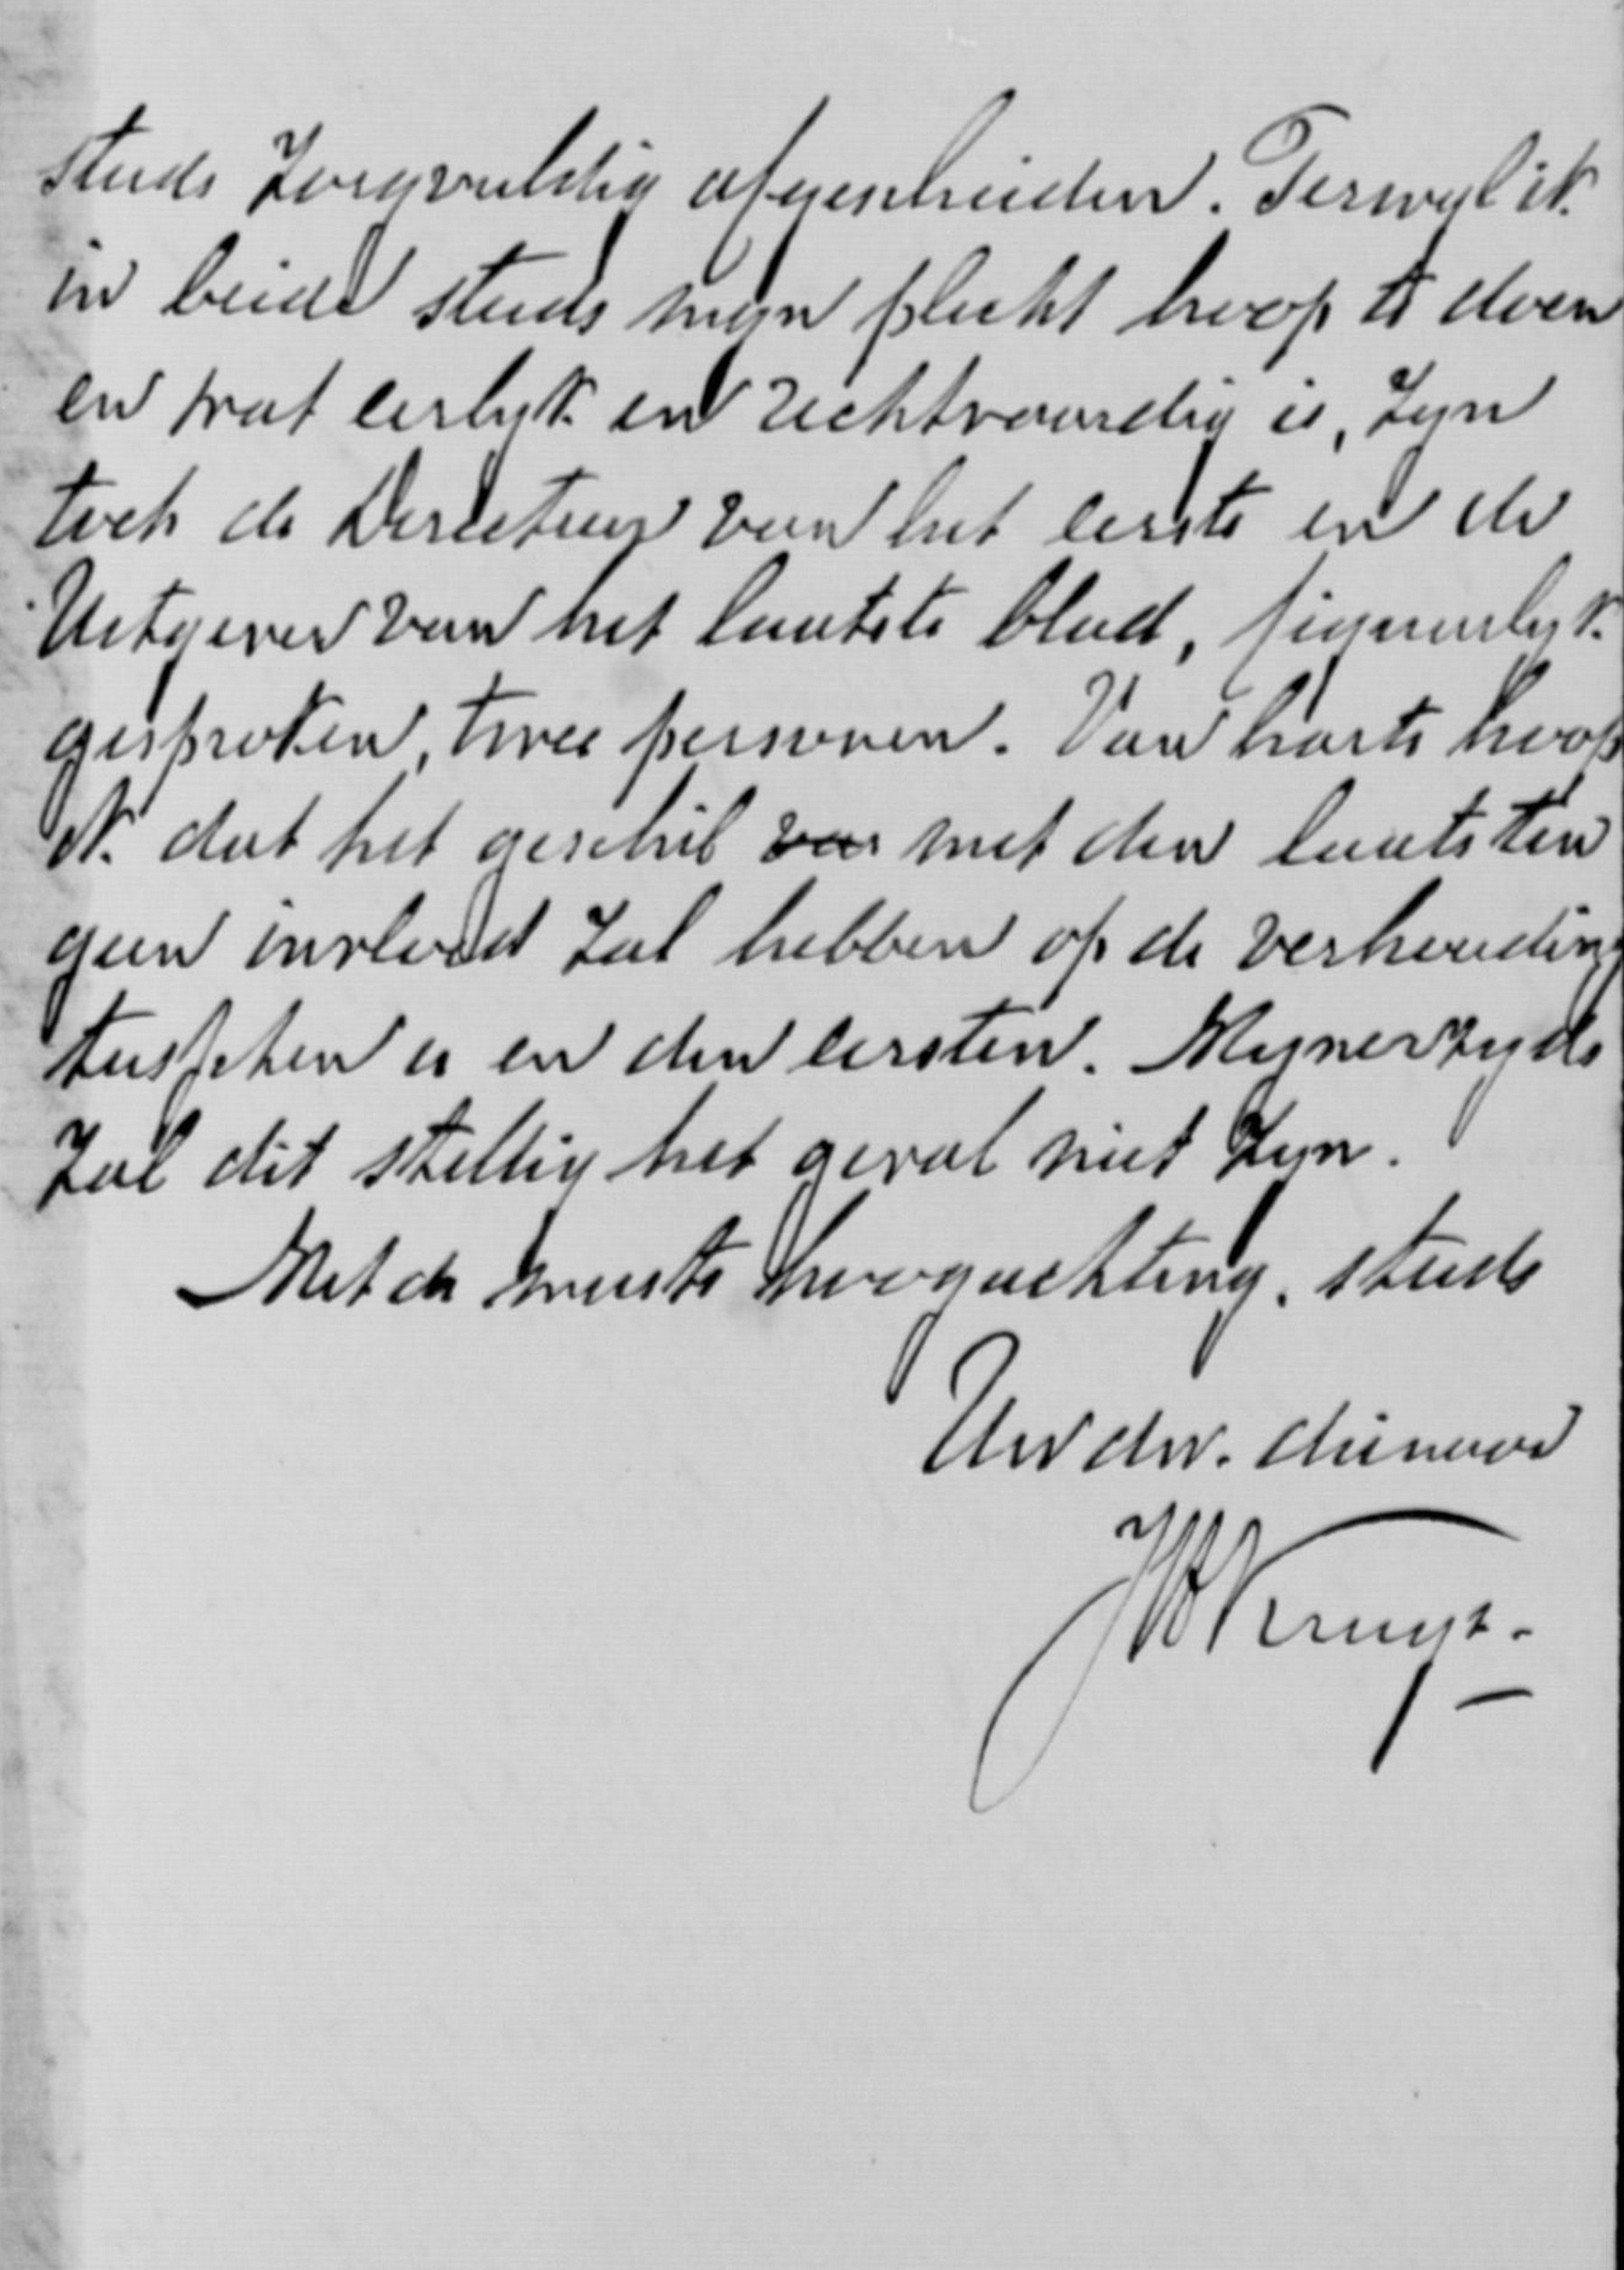 steeds zorgvuldig afgescheiden. Terwyl ik
in beide steeds myn plicht hoop te doen
en wat eerlyk en rechtvaardig is, zyn
toch de Directeur van het eerste en de
Uitgever van het laatste blad, figuurlyk
gesproken, twee personen. Van harte hoop
ik dat het geschil met den laatsten
geen invloed zal hebben op de verhouding
tusschen u en den eersten. Mynerzyds
zal dit stellig het geval niet zyn.
Met de meeste hoogachting, steeds
Uw dw. dienaar